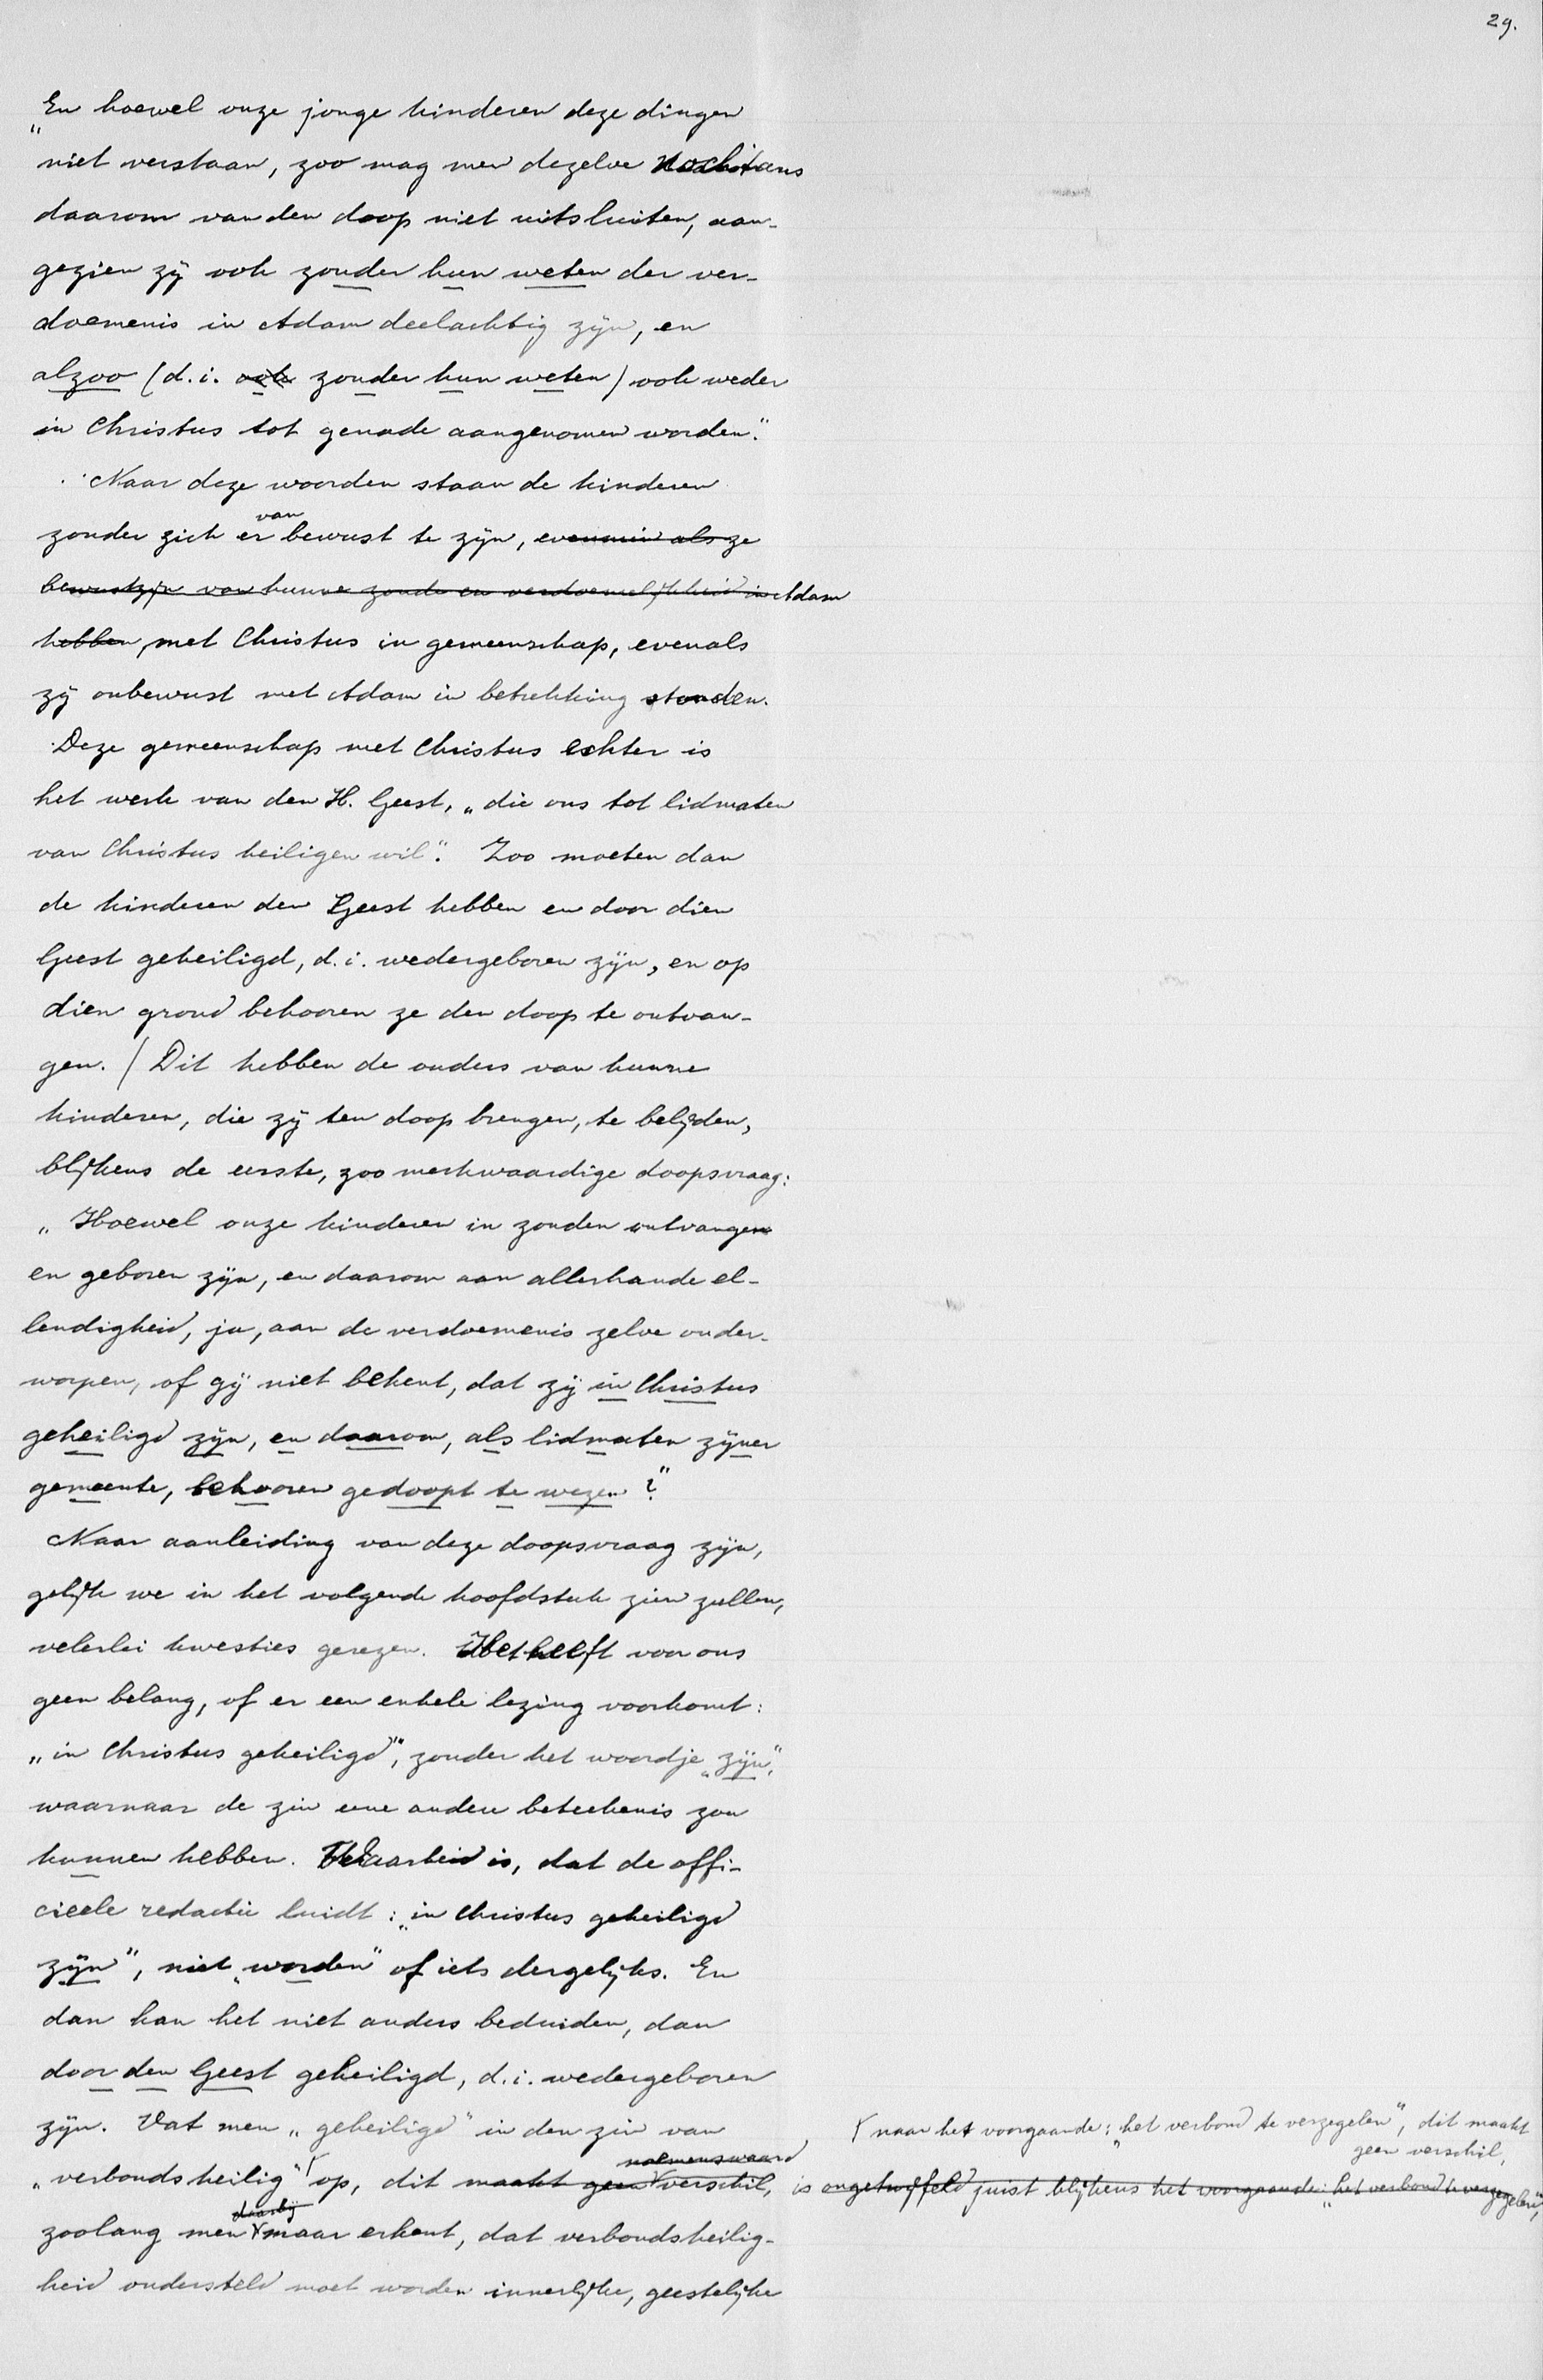 29.
„En hoewel onze jonge kinderen deze dingen
niet verstaan, zoo mag men dezelve nochtans
daarom van den doop niet uitsluiten, aan-
gezien zij ook zonder hun weten der ver-
doemenis in Adam deelachtig zijn, en
alzoo (d.i. ook zonder hun weten) ook weder
in Christus tot genade aangenomen worden."
Naar deze woorden staan de kinderen
van
zonder zich er bewust te zijn, evenmin als ze
bewustzijn van hunne zonde en verdoemelijkheid in Adam
hebben, met Christus in gemeenschap, evenals
zij onbewust met Adam in betrekking stonden.
Deze gemeenschap met Christus echter is
het werk van den H. Geest, „die ons tot lidmaten
van Christus heiligen wil". Zoo moeten dan
de kinderen den Geest hebben en door dien
Geest geheiligd, d.i. wedergeboren zijn, en op
dien grond behooren ze den doop te ontvan-
gen. / Dit hebben de ouders van hunne
kinderen, die zij ten doop brengen, te belijden,
blijkens de eerste, zoo merkwaardige doopsvraag:
„Hoewel onze kinderen in zonden ontvangen
en geboren zijn, en daarom aan allerhande el-
lendigheid, ja, aan de verdoemenis zelve onder-
worpen, of gij niet bekent, dat zij in Christus
geheiligd zijn, en daarom, als lidmaten zijner
gemeente, behooren gedoopt te wezen?"
Naar aanleiding van deze doopsvraag zijn,
gelijk we in het volgende hoofdstuk zien zullen,
velerlei kwesties gerezen. Het heeft voor ons
geen belang, of er een enkele lezing voorkomt:
„in Christus geheiligd", zonder het woordje „zijn",
waarnaar de zin eene andere beteekenis zou
kunnen hebben. Waarheid is, dat de offi-
cieele redactie luidt: „in Christus geheiligd
zijn", niet „worden" of iets dergelijks. En
dan kan het niet anders beduiden, dan
door den Geest geheiligd, d.i. wedergeboren
zijn. Vat men „geheiligd" in den zin van
noemenswaard
„verbondsheilig" op, dit maakt geen verschil, is ongetwijfeld juist blijkens het voorgaande: „het verbond te verzegelen",
daarbij
zoolang men maar erkent, dat verbondsheilig-
heid ondersteld moet worden innerlijke, geestelijke
naar het voorgaande: „het verbond te verzegelen", dit maakt
geen verschil,